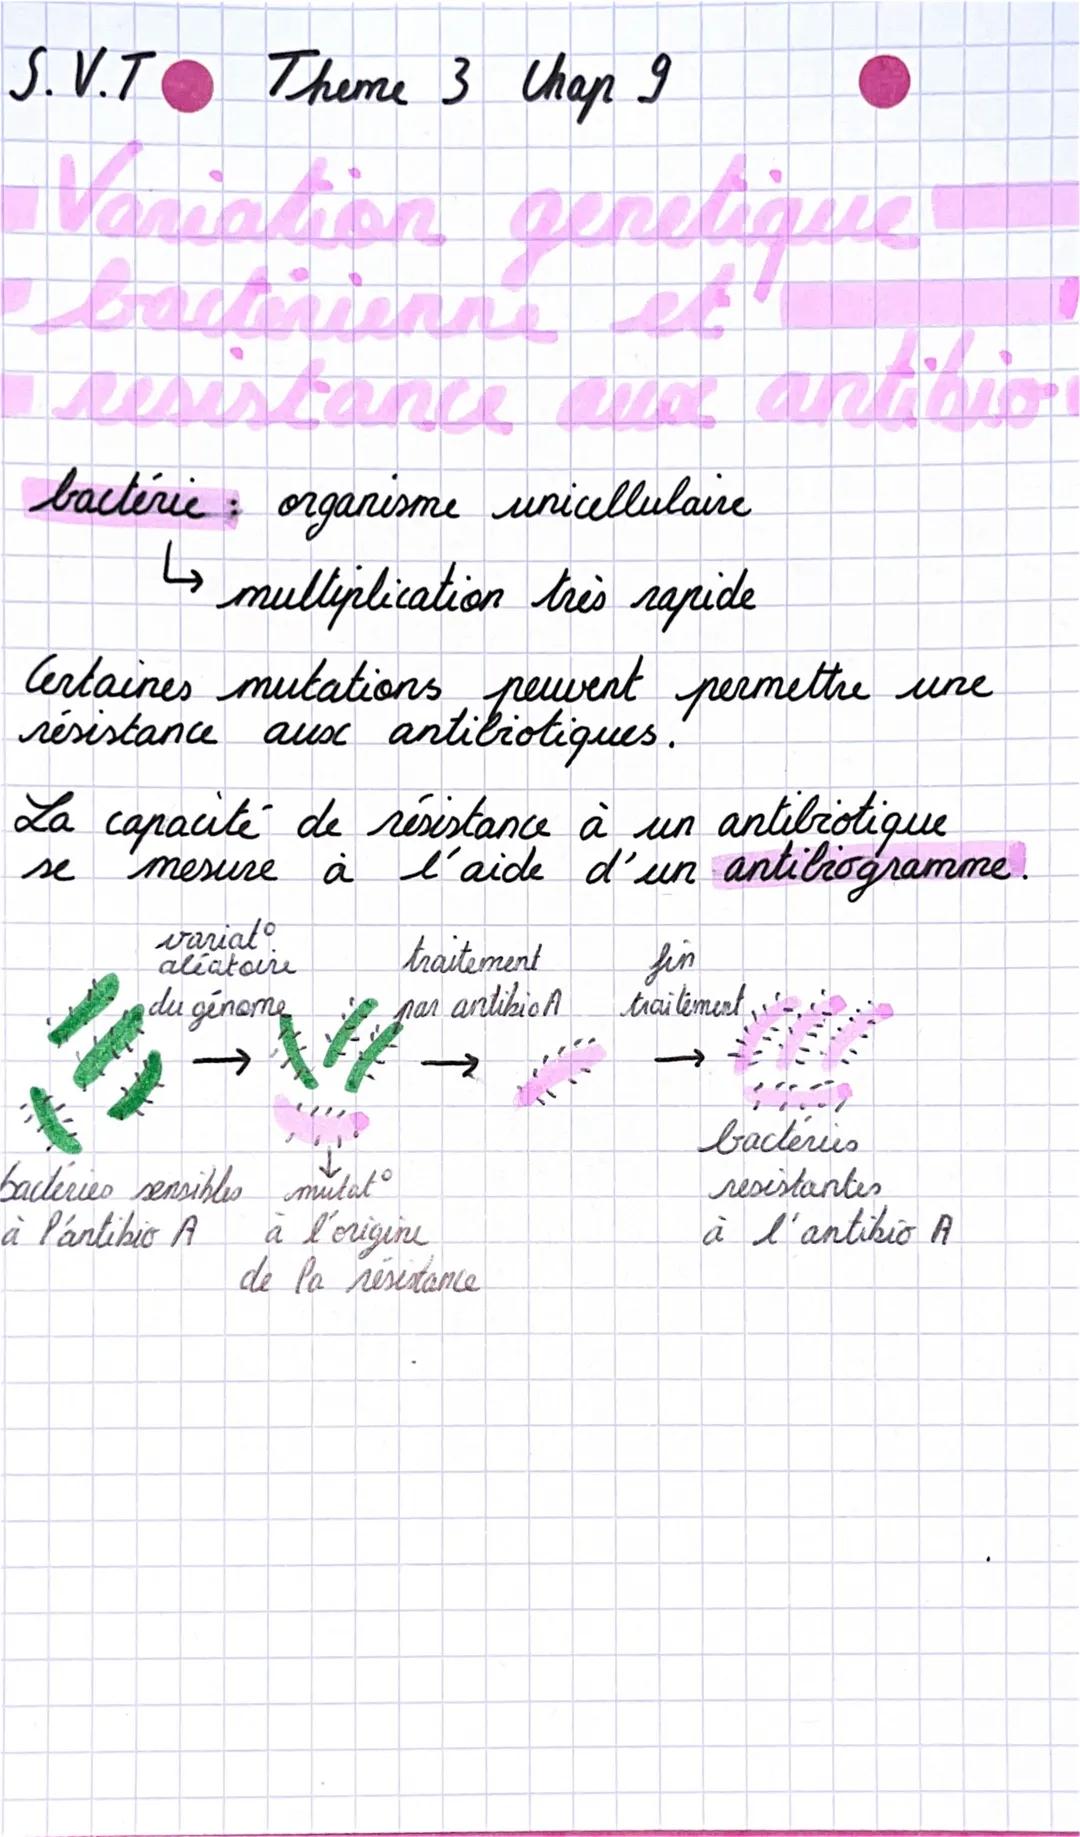 S.V.T Theme 3 Chap 9
Variation genetique
bactérienne et
resistance aux antibio
bactérie : organisme unicellulaire
↳ multiplication très rapide
Certaines mutations peuvent permettre une
résistance aux antibiotiques.
La capacité de résistance à un antibiotique
se mesure à l'aide d'un antibiogramme.
variat° aléatoire du génome
traitement par antibio A
fin traitement
bactéries sensibles
à l'antibio A
mutat°
à l'origine
de la résistance
bactéries
resistantes
à l'antibio A